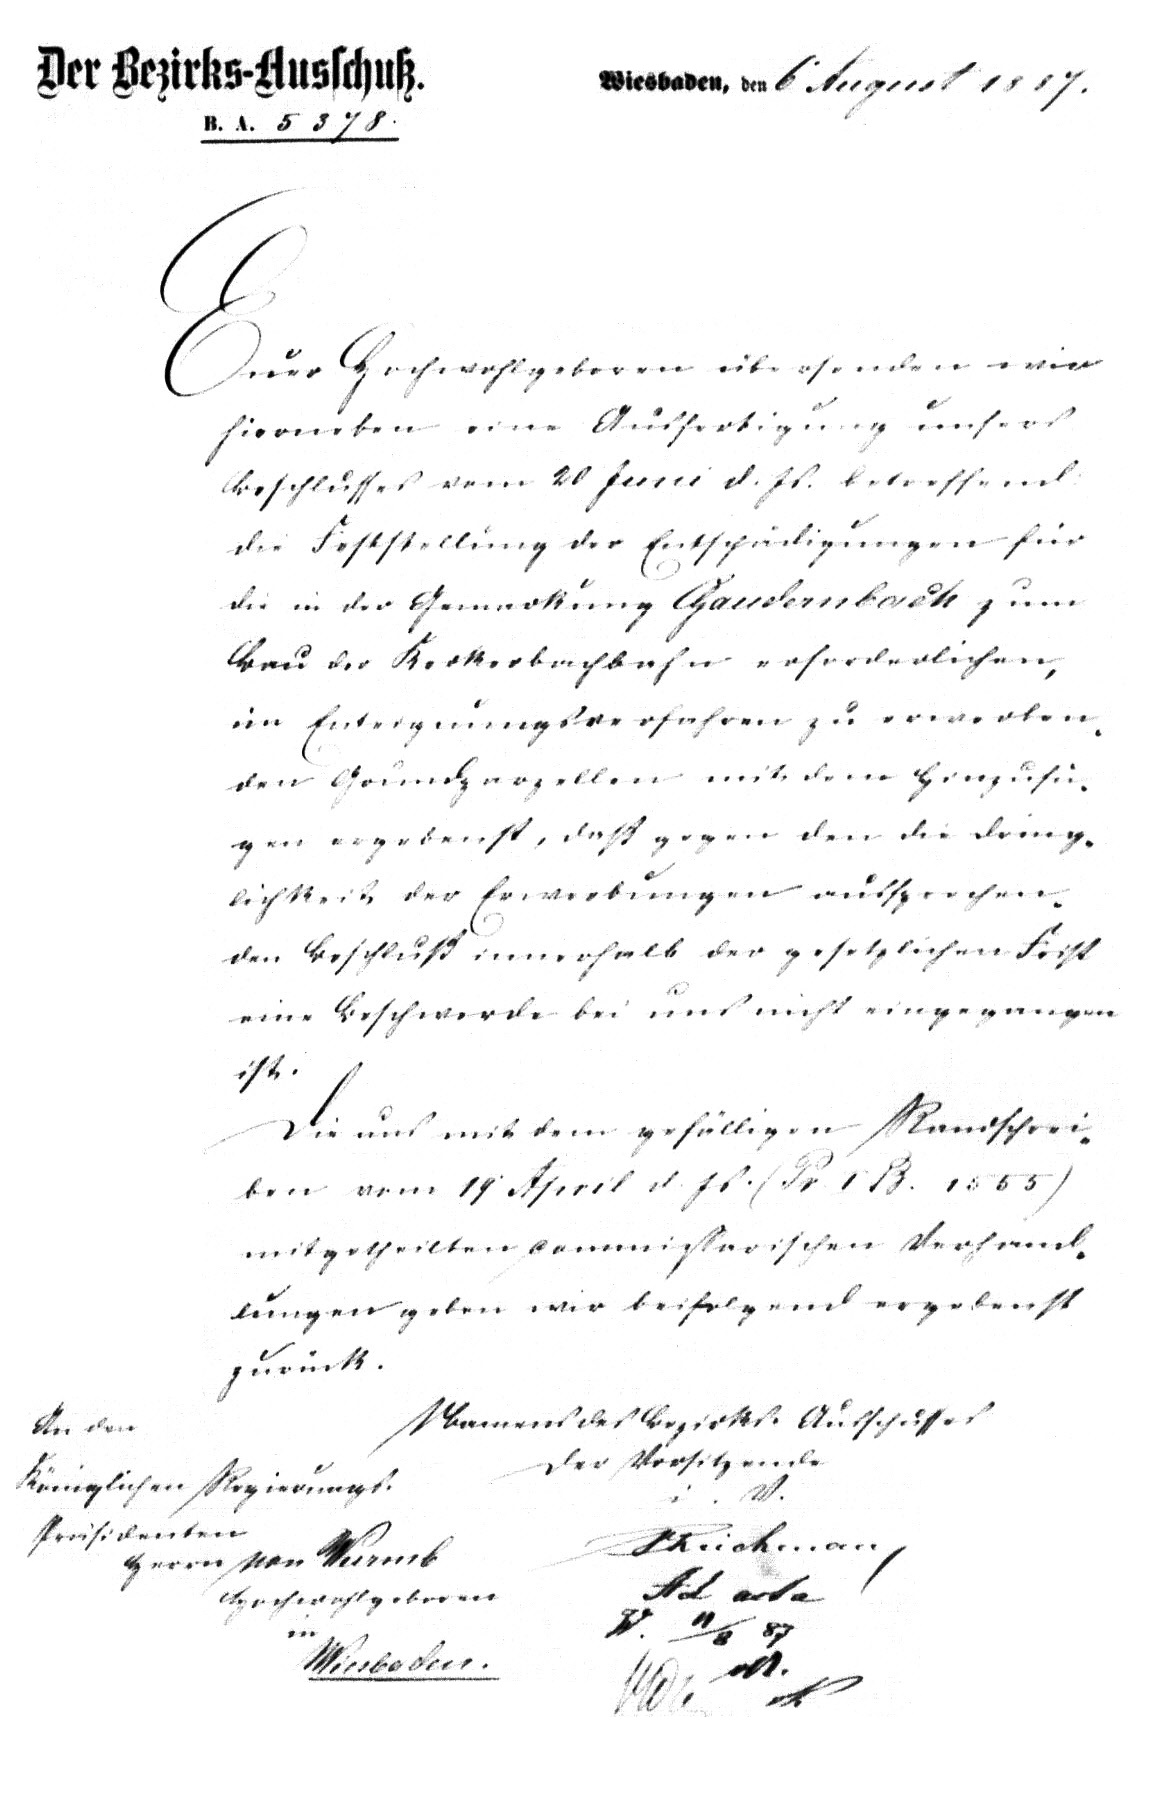 Der Bezirks-Ausschuß.
Wiesbaden, den 6 August 1887.
B. A. 5378.
Euer Hochwohlgeboren übersenden wir
hierneben eine Ausfertigung unsers
Beschlusses vom 20 Juni d. Js. betreffend
die Feststellung der Entschädigungen für
die in der Gemarkung Gaudernbach zum
Bau der Kerkerbachbahn erforderlichen,
im Enteignungsverfahren zu erwerben-
den Grundparzellen mit dem Hinzufü-
gen ergebenst, daß gegen den die Dring-
lichkeit der Erwerbungen aussprechen-
den Beschluß innerhalb der gesetzlichen Frist
eine Beschwerde bei uns nicht eingegangen
ist.
Die uns mit dem gefälligen Randschrei-
ben vom 19 April d. Js. (Pr. I B. 1555)
mitgetheilten commissarischen Verhand-
lungen geben wir beifolgend ergebenst
zurück.
Namens des Bezirks-Ausschusses
Der Vorsitzende
i. V.
An den
Königlichen Regierungs-
Präsidenten
Herrn von Wurmb
Hochwohlgeboren
in
Wiesbaden.
Ad acta
W. 11/8 87